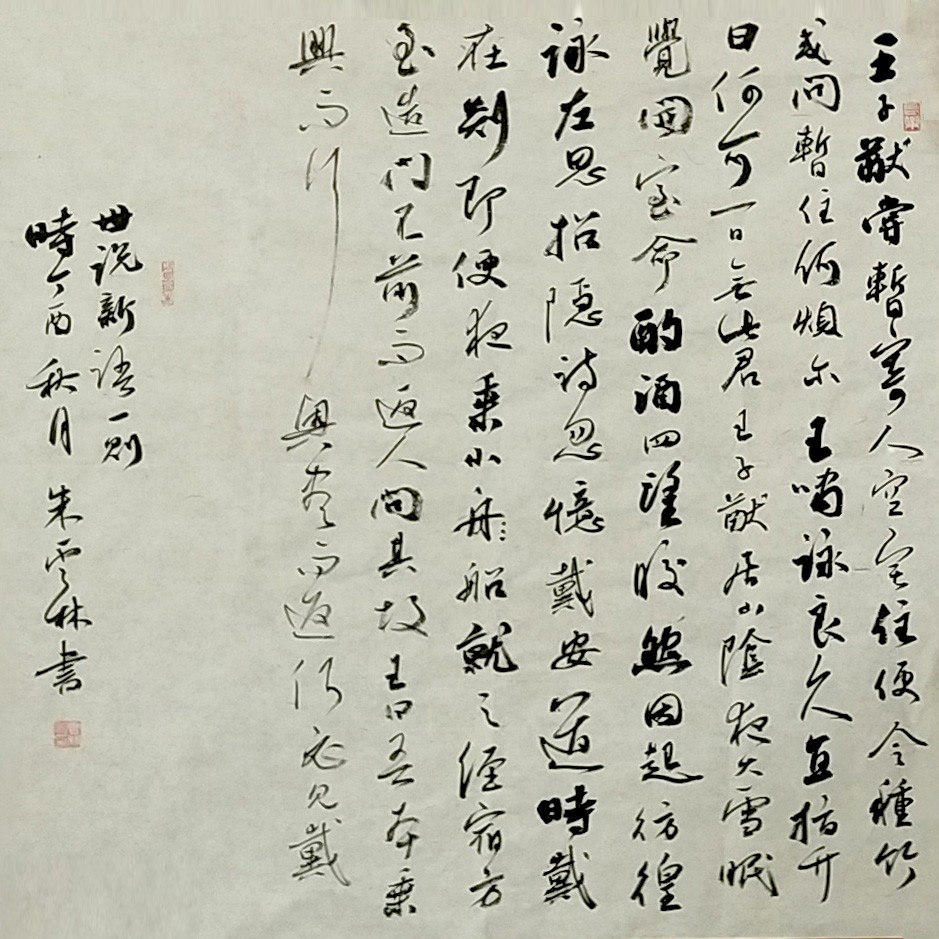 王子猷嘗暫寄人空宅住便令種竹
或問暫住何煩尔王嘯詠良久直指竹
曰何可一日無此君王子猷居山陰夜大雪眠
覺開室命酌酒四望皎然因起彷徨
詠左思招隱詩忽憶戴安道時戴
在剡即便夜乘小舟船就之經宿方
至造門不前而返人問其故王曰吾本乘
興而行興盡而返何必見戴
世説新語一則
時丁酉秋月朱雲林書